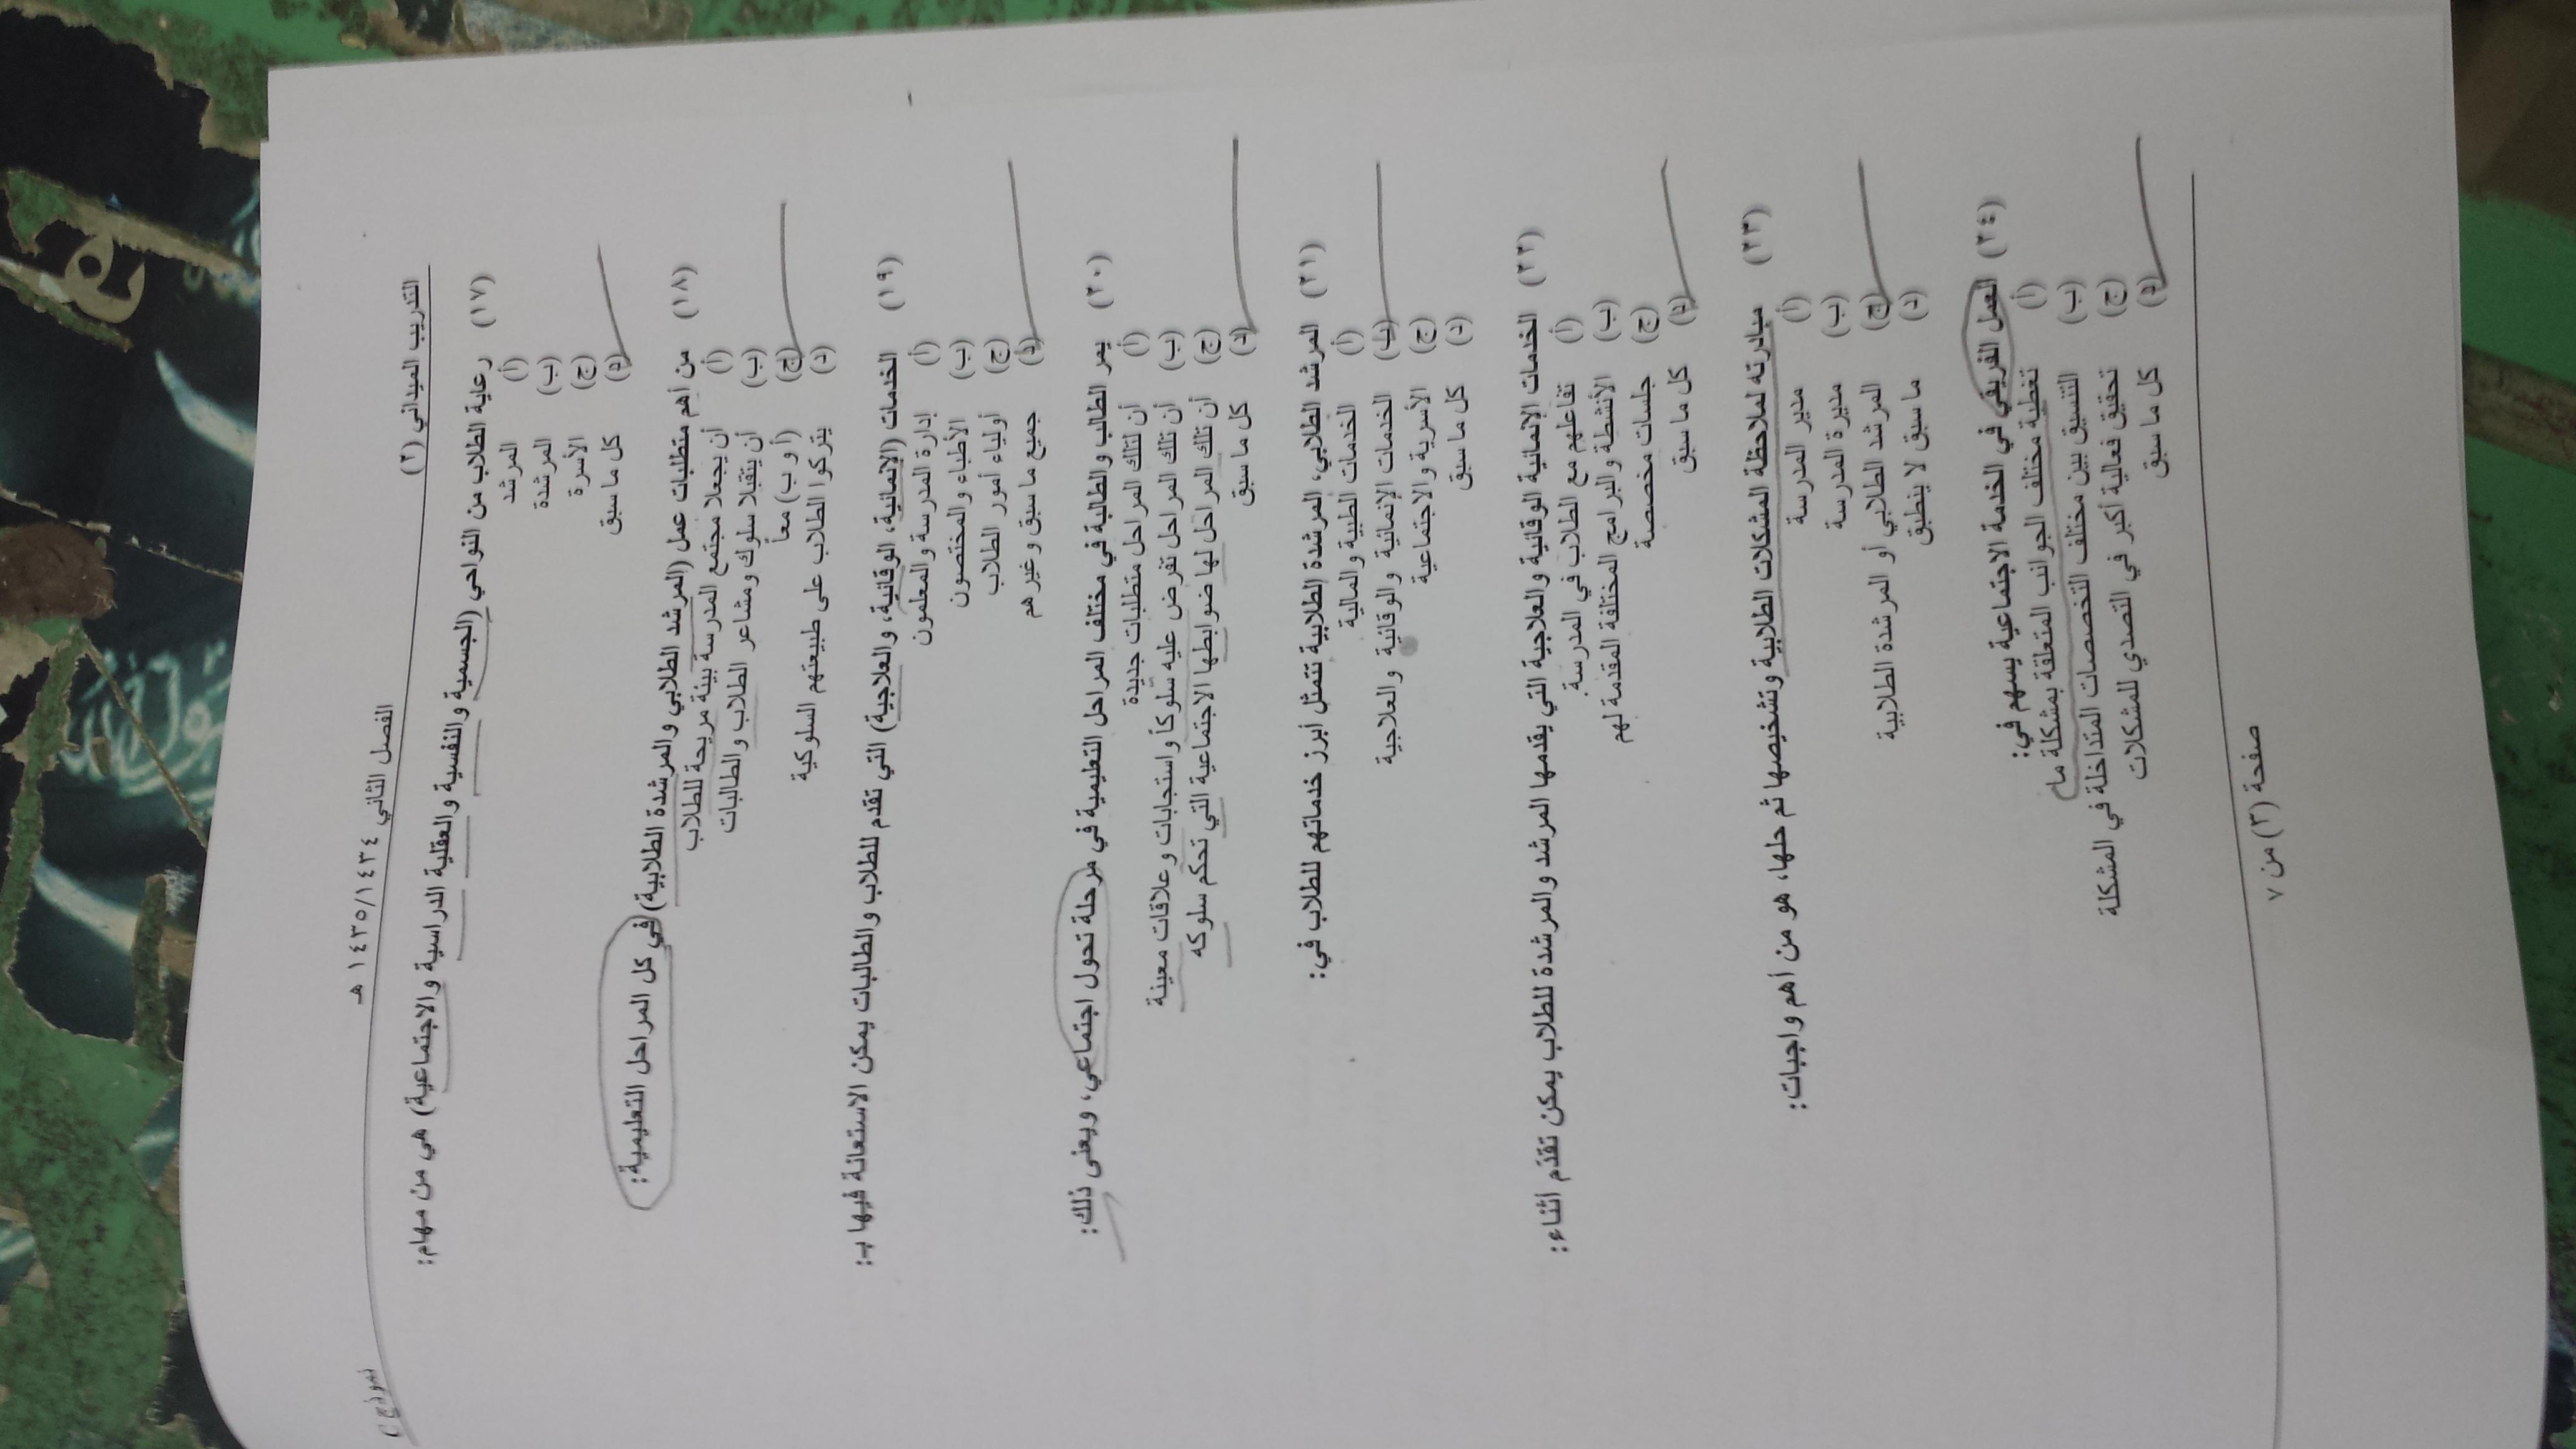 التدريب الميداني (٢) الفصل الثاني ١٤٣٥/١٤٣٤ هـ نموذج
(١٧) رعاية الطلاب من النواحي (الجسمية والنفسية والعقلية الدراسية والاجتماعية) هي من مهام:
(أ) المرشد
(ب) المرشدة
(ج) الأسرة
(د) كل ما سبق
(١٨) من أهم متطلبات عمل (المرشد الطلابي والمرشدة الطلابية) في كل المراحل التعليمية:
(أ) أن يجعلا مجتمع المدرسة بيئة مريحة للطلاب
(ب) أن يتقبلا سلوك ومشاعر الطلاب والطالبات
(ج) (أ و ب) معاً
(د) يتركوا الطلاب على طبيعتهم السلوكية
(١٩) الخدمات (الإنمائية، الوقائية، والعلاجية) التي تقدم للطلاب والطالبات يمكن الاستعانة فيها بـ:
(أ) إدارة المدرسة والمعلمون
(ب) الأطباء والمختصون
(ج) أولياء أمور الطلاب
(د) جميع ما سبق وغيرهم
(٢٠) يمر الطالب والطالبة في مختلف المراحل التعليمية في مرحلة تحول اجتماعي، ويعنى ذلك:
(أ) أن لتلك المراحل متطلبات جديدة
(ب) أن تلك المراحل تفرض عليه سلوكاً واستجابات وعلاقات معينة
(ج) أن تلك المراحل لها ضوابطها الاجتماعية التي تحكم سلوكه
(د) كل ما سبق
(٢١) المرشد الطلابي، المرشدة الطلابية تتمثل أبرز خدماتهم للطلاب في:
(أ) الخدمات الطبية والمالية
(ب) الخدمات الإنمائية والوقائية والعلاجية
(ج) الأسرية والاجتماعية
(د) كل ما سبق
(٢٢) الخدمات الإنمائية الوقائية والعلاجية التي يقدمها المرشد والمرشدة للطلاب يمكن تقدّم أثناء:
(أ) تفاعلهم مع الطلاب في المدرسة
(ب) الأنشطة والبرامج المختلفة المقدمة لهم
(ج) جلسات مخصصة
(د) كل ما سبق
(٢٣) مبادرته لملاحظة المشكلات الطلابية وتشخيصها ثم حلها، هو من أهم واجبات:
(أ) مدير المدرسة
(ب) مديرة المدرسة
(ج) المرشد الطلابي أو المرشدة الطلابية
(د) ما سبق لا ينطبق
(٢٤) العمل الفريقي في الخدمة الاجتماعية يسهم في:
(أ) تغطية مختلف الجوانب المتعلقة بمشكلة ما
(ب) التنسيق بين مختلف التخصصات المتداخلة في المشكلة
(ج) تحقيق فعالية أكبر في التصدي للمشكلات
(د) كل ما سبق
صفحة (٣) من ٧